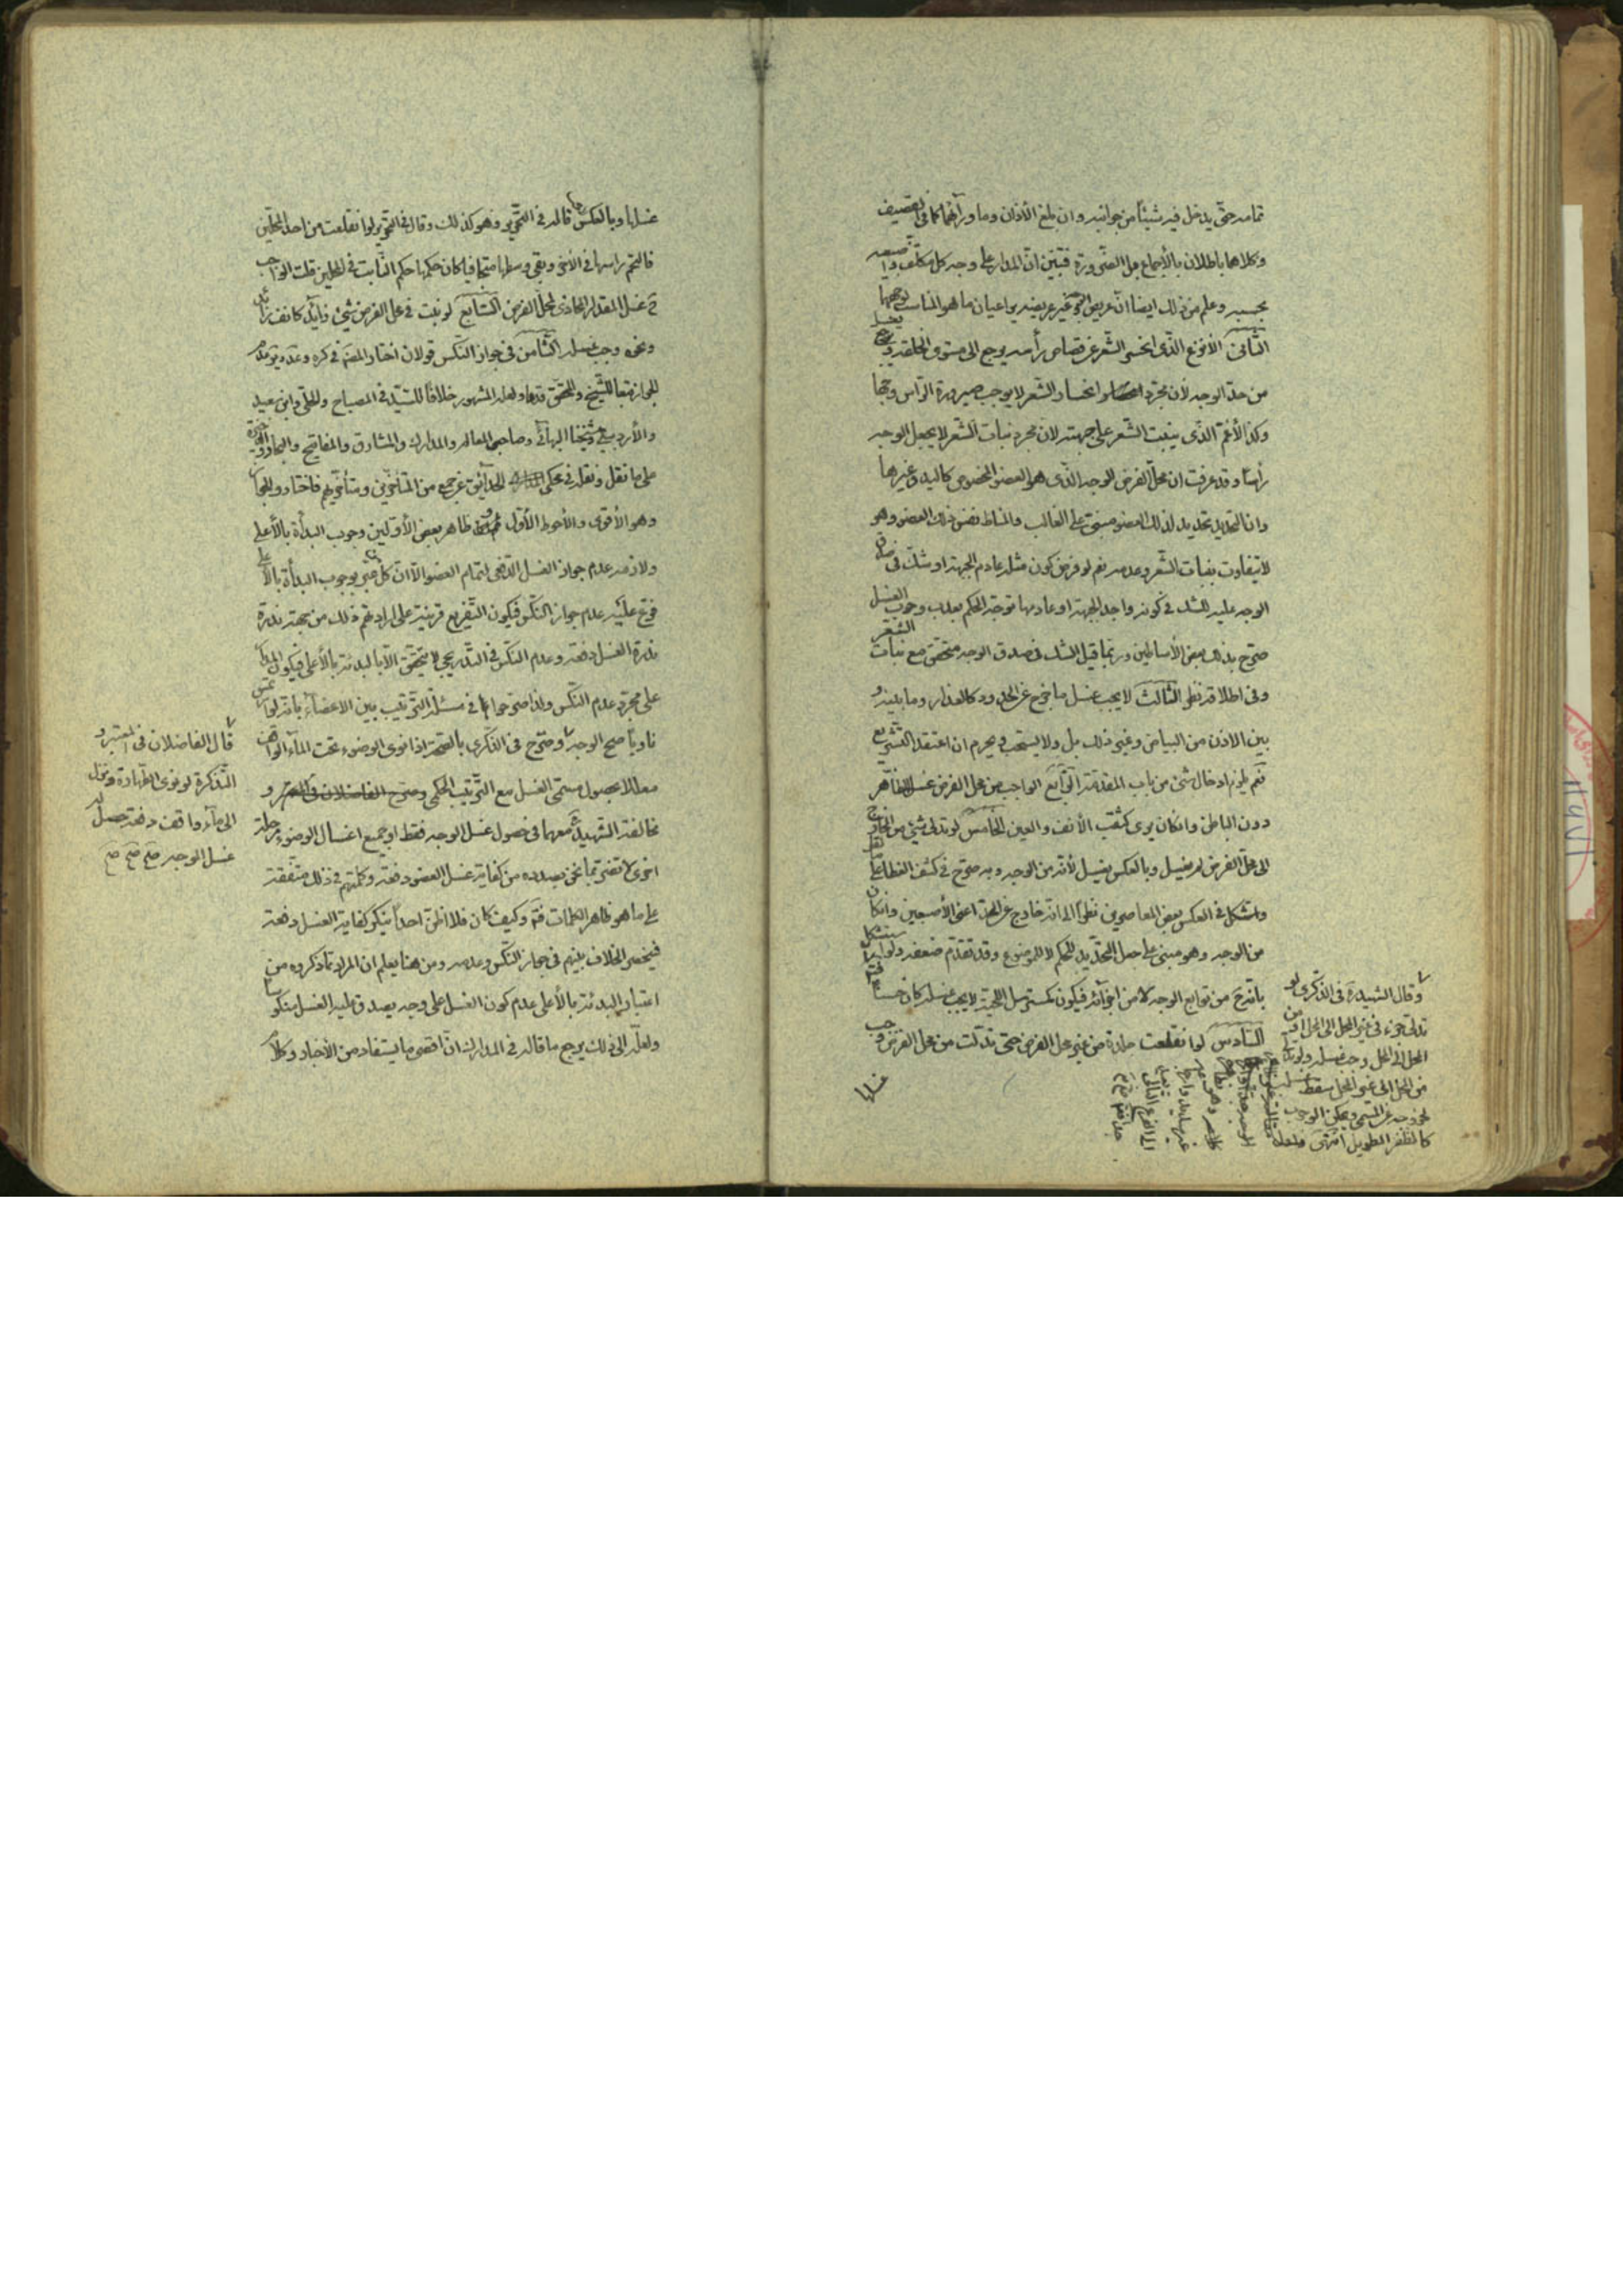 تمامه حتى يدخل فيه شيئا من جوانبه وان بلغ الأذنان وما ورائهما كما في تنصيف
وكلاهما باطلان بالاجماع بل الضرورة فتبين ان المدار على وجه كل مكلف واصبعه
بحسبه وعلم من ذلك ايضا ان عريض الوجه غير عريضه يراعيان ما هو المناسب لوجهها
الثاني الأنزع الذي انحسر الشعر عن قصاص رأسه يرجع الى مستوى الخلقة فيغسل
من حد الوجه لأن مجرد انحسار الشعر لا يوجب صيرورة الرأس وجها
وكذا الأغم الذي ينبت الشعر على جبهته لان مجرد نبات الشعر لا يجعل الوجه
رأسا وقد عرفت ان محل الفرض الوجه الذي هو العضو المخصوص كاليد وغيرها
وان التحديد تحديد لذلك العضو مبني على الغالب والمناط نفس ذلك العضو وهو
لا يتفاوت بنبات الشعر وعدمه نعم لو فرض كون مثله عادم الجبهة او شك في صدق
الوجه عليه للشك في كونه واجد الجبهة او عادمها توجه الحكم بعدم وجوب الغسل
صرح بذلك بعض الأساطين وربما قيل الشك في صدق الوجه متحقق مع نبات الشعر
وفي اطلاقه نظر الثالث لا يجب غسل ما خرج عن الحدود كالعذار وما بينه و
بين الاذن من البياض وغير ذلك بل ولا يستحب ويحرم ان اعتقد التشريع
نعم يلزم ادخال شئ من باب المقدمة الرابع الواجب من محل الفرض غسل الظاهر
دون الباطن وان كان يرى كثقب الأنف والعين الخامس لو تدلى شئ من الخارج
الى محل الفرض لم يغسل وبالعكس يغسل لأنه من الوجه وبه صرح في كشف الغطاء
واستشكل في العكس بعض المعاصرين نظرا الى انه خارج عن الحد اعني الأصبعين وان كان
من الوجه وهو مبني على جعل التحديد للحكم لا للموضوع وقد تقدم ضعفه ولو استشكل
بأنه ح من توابع الوجه لا من اجزائه فيكون كمسترسل اللحية لا يجب غسله كان حسنا
السادس لو انقلعت جلدة من غير محل الفرض حتى تدلت من محل الفرض وجب
غسلها
وقال الشهيد ره في الذكرى لو
تدلى جزء في غير المحل الى المحل او من
المحل الى المحل وجب غسله ولو تدلى
من المحل الى غير المحل سقط
لخروجه عن المسمى ويمكن الوجوب
كالظفر الطويل انتهى
غسلها وبالعكس قاله في التحرير وهو كذلك وقال في التحرير لو انقلعت من احد المحلين
فالتحم راسها في الآخر وبقي وسطها متجافيا كان حكمها حكم الثابت في المحلين قلت الواجب
ح غسل المقدار المحاذي لمحل الفرض السابع لو نبت في محل الفرض شئ زايد كانف زائد
ونحوه وجب غسله الثامن في جواز النكس قولان اختار المصنف في كره
للجواز تبعا للشيخ والمحقق قدهما ولعله المشهور خلافا للسيد في المصباح والحلي وابن سعيد
والأردبيلي وشيخنا البهائي وصاحبي المعالم والمدارك والمشارق والمفاتيح والبحار
على ما نقل ونقله في محكي الحدائق عن جمع من المتأخرين ومتأخريهم فاختاروا الجواز
وهو الأقوى والأحوط الأول ثم ان ظاهر بعض الأولين وجوب البداة بالأعلى
ولازمه عدم جواز الغسل الدفعي لتمام العضو الا ان كل من عبر بوجوب البداة بالأعلى
فرع عليه عدم جواز النكس فيكون التفريع قرينة على ارادتهم ذلك من جهة ندرة
ندرة الغسل دفعة وعدم النكس في التدريجي لا يتحقق الا بالبدئة بالأعلى فيكون المدار
على مجرد عدم النكس ولذا صرحوا في مسئلة الترتيب بين الاعضاء بانه لو انغمس
ناويا صح الوجه وصرح في الذكرى بالصحة اذا نوى الوضوء تحت الماء الواقف
معللا بحصول مسمى الغسل مع الترتيب الحكمي وصرح الفاضلان و
مخالفة الشهيد ره معهما في حصول غسل الوجه فقط او جميع اغسال الوضوء جملة
اخرى لا تضر بما نحن بصدده من كفاية غسل العضو دفعة وكلمتهم في ذلك متفقة
على ما هو ظاهر الكلمات فتم وكيف كان فلا اظن احدا ينكر كفاية الغسل دفعة
فينحصر الخلاف بينهم في جواز النكس وعدمه ومن هنا يعلم ان المراد مما ذكروه من
اعتبار البدئة بالأعلى عدم كون الغسل على وجه يصدق عليه الغسل منكوسا
ولعله الى ذلك يرجع ما قاله في المدارك ان اقصى ما يستفاد من الأخبار وكلام
قال الفاضلان في المعتبر و
التذكرة لو نوى الطهارة ونزل
الى ماء واقف دفعة حصل له
غسل الوجه صح صح صح